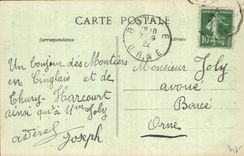 CARTE POSTALE
Correspondance
ORNE
10
Un bonjour des Moutiers
en Cinglais et de
Thury-Harcourt
ainsi qu'à Mme Joly
Joseph
Monsieur Joly
avoué
Boucé
Orne